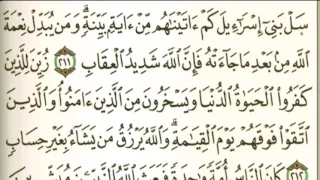 سَلْ بَنِىٓ إِسْرَٰٓءِيلَ كَمْ ءَاتَيْنَٰهُم مِّنْ ءَايَةٍۭ بَيِّنَةٍۗ وَمَن يُبَدِّلْ نِعْمَةَ
ٱللَّهِ مِنۢ بَعْدِ مَا جَآءَتْهُ فَإِنَّ ٱللَّهَ شَدِيدُ ٱلْعِقَابِ ٢١١ زُيِّنَ لِلَّذِينَ
كَفَرُوا۟ ٱلْحَيَوٰةُ ٱلدُّنْيَا وَيَسْخَرُونَ مِنَ ٱلَّذِينَ ءَامَنُوا۟ۘ وَٱلَّذِينَ
ٱتَّقَوْا۟ فَوْقَهُمْ يَوْمَ ٱلْقِيَٰمَةِۗ وَٱللَّهُ يَرْزُقُ مَن يَشَآءُ بِغَيْرِ حِسَابٍ
٢١٢ كَانَ ٱلنَّاسُ أُمَّةً وَٰحِدَةً فَبَعَثَ ٱللَّهُ ٱلنَّبِيِّـۧنَ مُبَشِّرِينَ